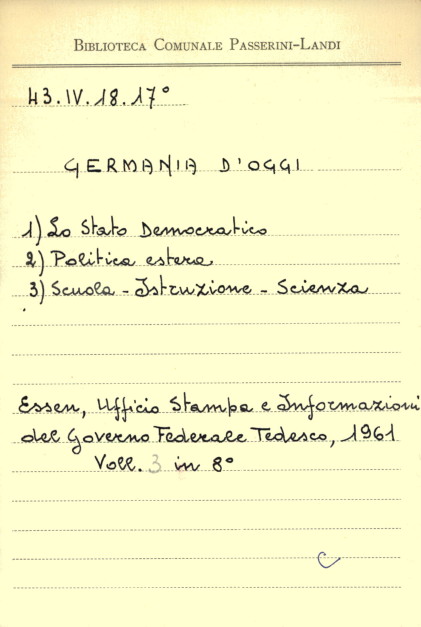 BIBLIOTECA COMUNALE PASSERINI-LANDI
43.IV.18.17°
GERMANIA D'OGGI
1) Lo Stato Democratico
2) Politica estera
3) Scuola - Istruzione - Scienza
Essen, Ufficio Stampa e Informazioni
del Governo Federale Tedesco, 1961
Voll. 3 in 8°
C